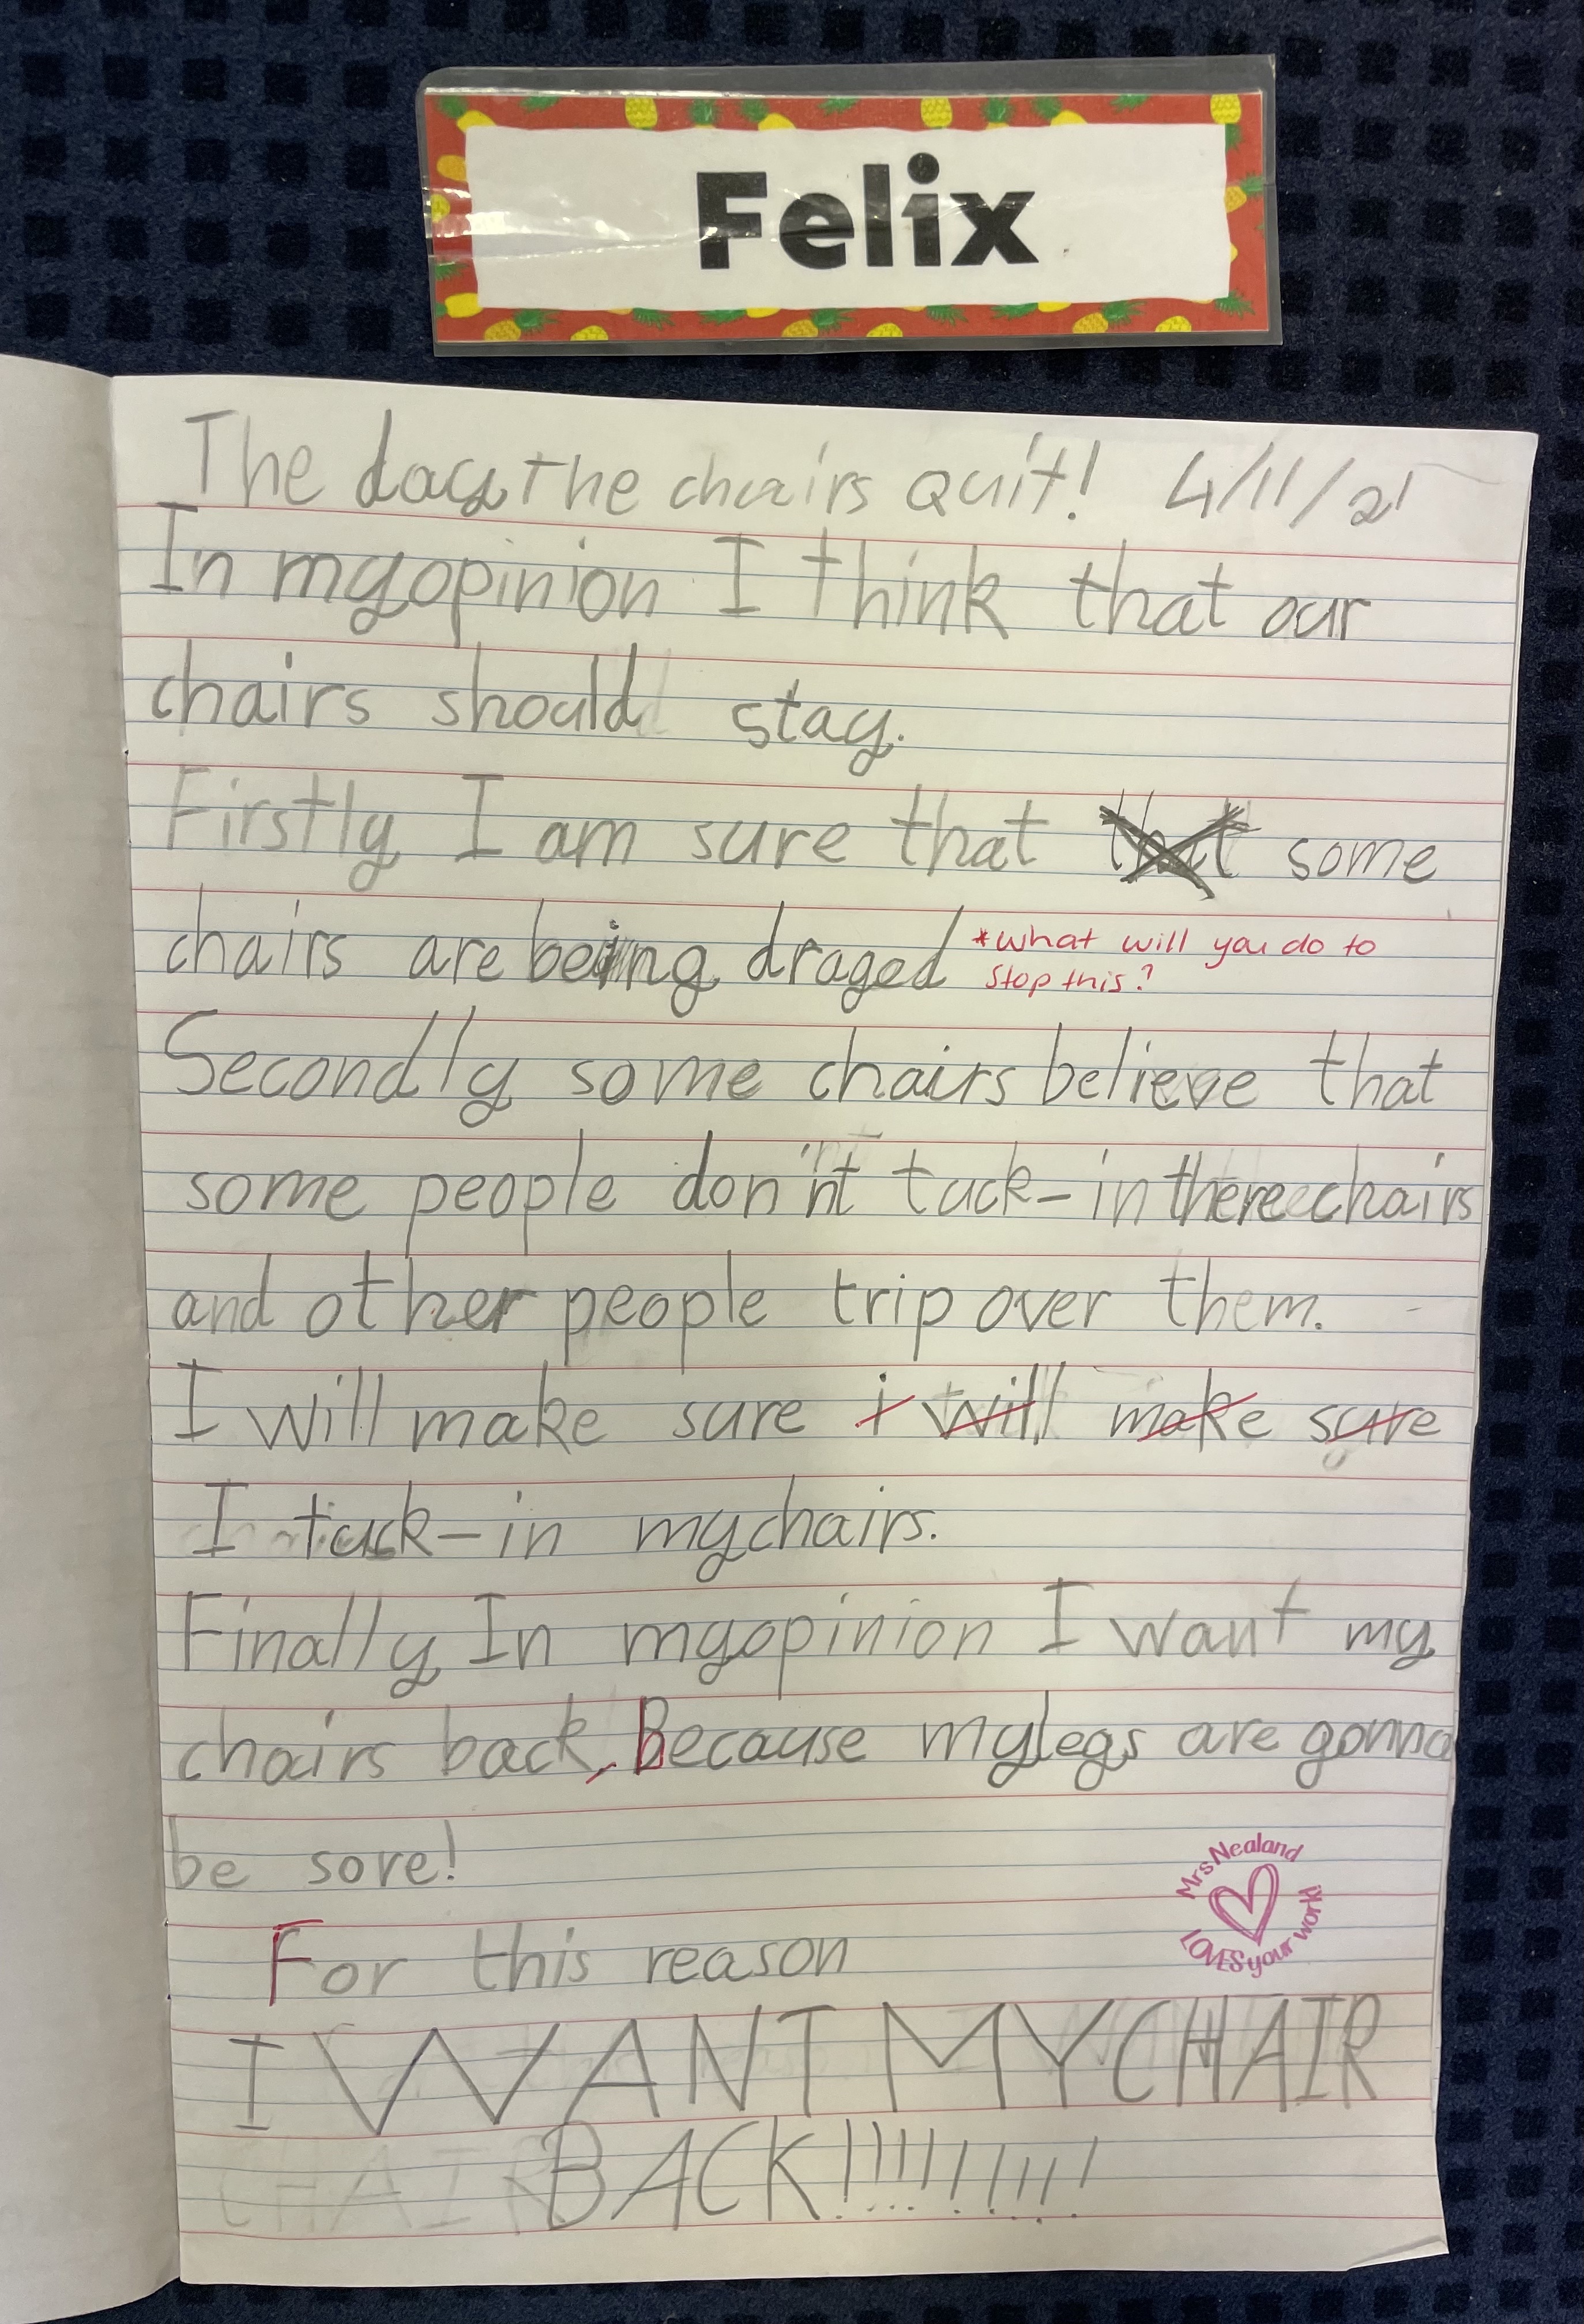 Felix
The day the chairs quit! 4/11/21
In my opinion I think that our
chairs should stay.
Firstly I am sure that that some
chairs are being draged *What will you do to
stop this?
Secondly some chairs believe that
some people don'nt tuck-in there chairs
and other people trip over them.
I will make sure i will make sure
I tuck-in my chairs.
Finally In my opinion I want my
chairs back, Because my legs are gonna
be sore!
Mrs Nealand
LOVES your work
For this reason
I WANT MY CHAIR
BACK!!!!!!!!!!